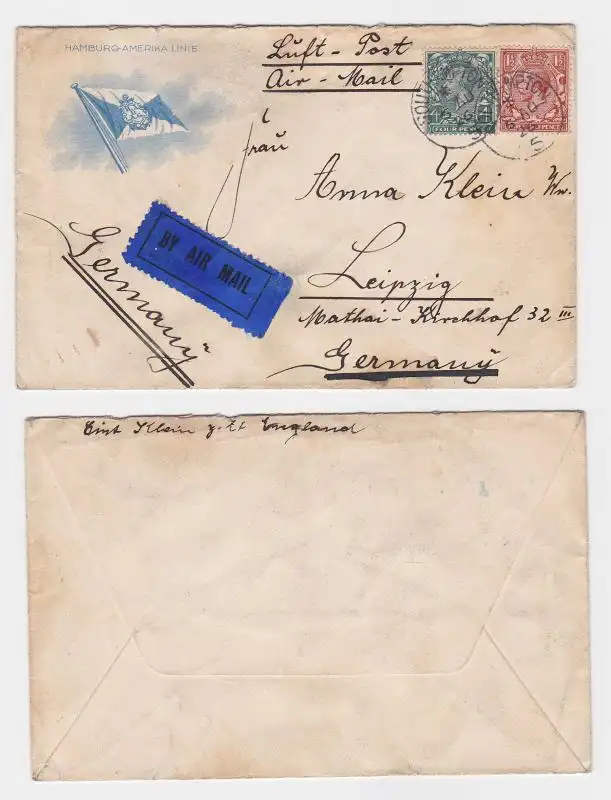 HAMBURG-AMERIKA LINIE
Luft - Post
Air - Mail
Frau
Anna Klein Ww.
Leipzig
Mathai - Kirchhof 32 III
Germany
BY AIR MAIL
Germany
FOUR PENCE
Klein z. Zt England